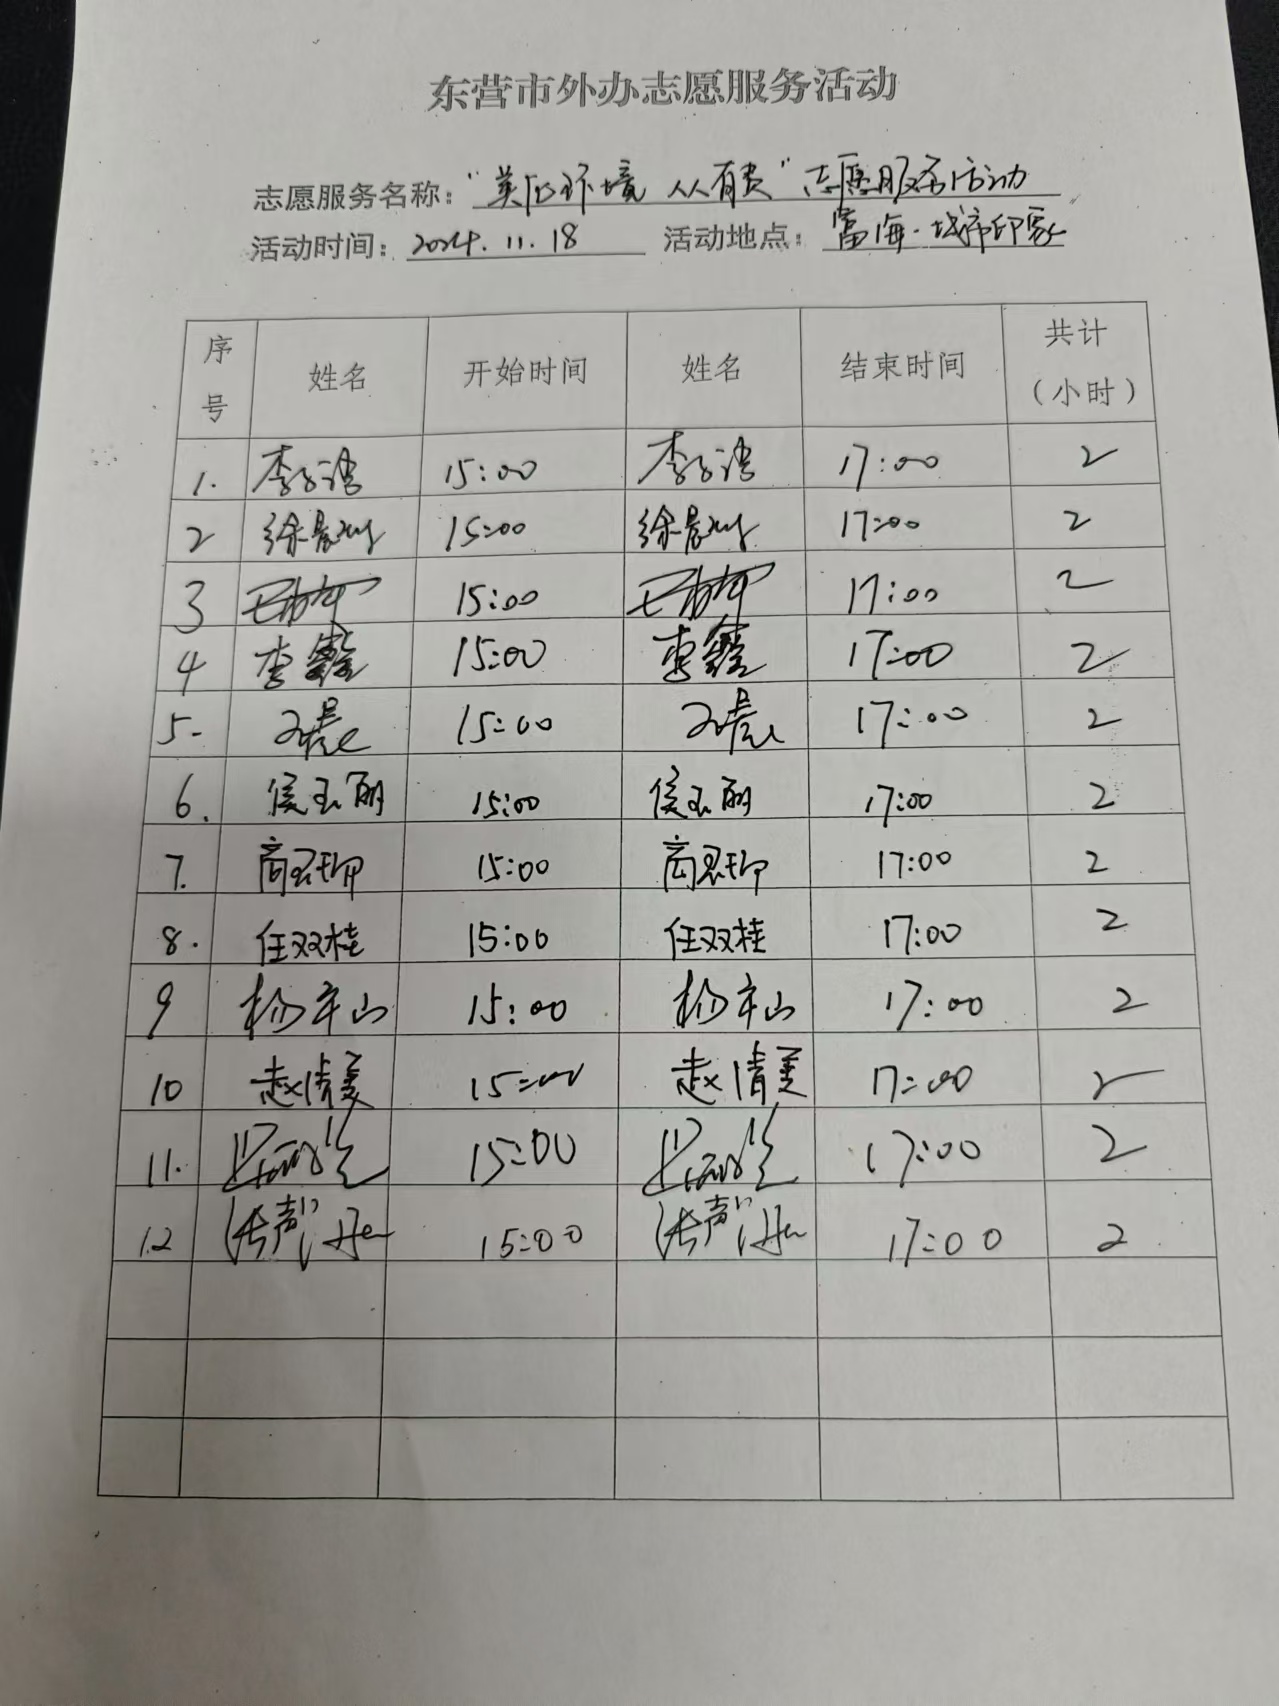 东营市外办志愿服务活动
志愿服务名称："美化环境 人人有责"志愿服务活动
活动时间：2024.11.18 活动地点：富海·城市印象
序号 姓名 开始时间 姓名 结束时间 共计（小时）
1. 李 15:00 李 17:00 2
2 徐晨 15:00 徐晨 17:00 2
3 15:00 17:00 2
4 李鑫 15:00 李鑫 17:00 2
5. 15:00 17:00 2
6. 侯玉丽 15:00 侯玉丽 17:00 2
7. 商 15:00 商 17:00 2
8. 任双桂 15:00 任双桂 17:00 2
9 杨 山 15:00 杨 山 17:00 2
10 赵倩 15:00 赵倩 17:00 2
11. 15:00 17:00 2
12 15:00 17:00 2